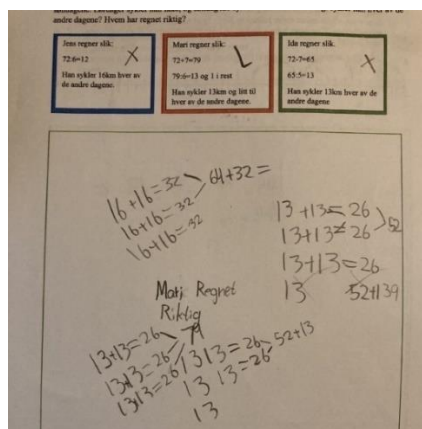 andre dagene? Hvem har regnet riktig?
Jens regner slik:
72:6=12
Han sykler 16km hver av
de andre dagene.
X
Mari regner slik:
72+7=79
79:6=13 og 1 i rest
Han sykler 13km og litt til
hver av de andre dagene.
Ida regner slik:
72-7=65
65:5=13
Han sykler 13km hver av de
andre dagene
X
16+16=32
16+16=32
16+16=32
64+32=
13+13=26
13+13=26
52
13+13=26
13
Regnet
Riktig
13+13=26
13+13=26
13+13=26
79
13 13=26
13 13=26
52+13
13